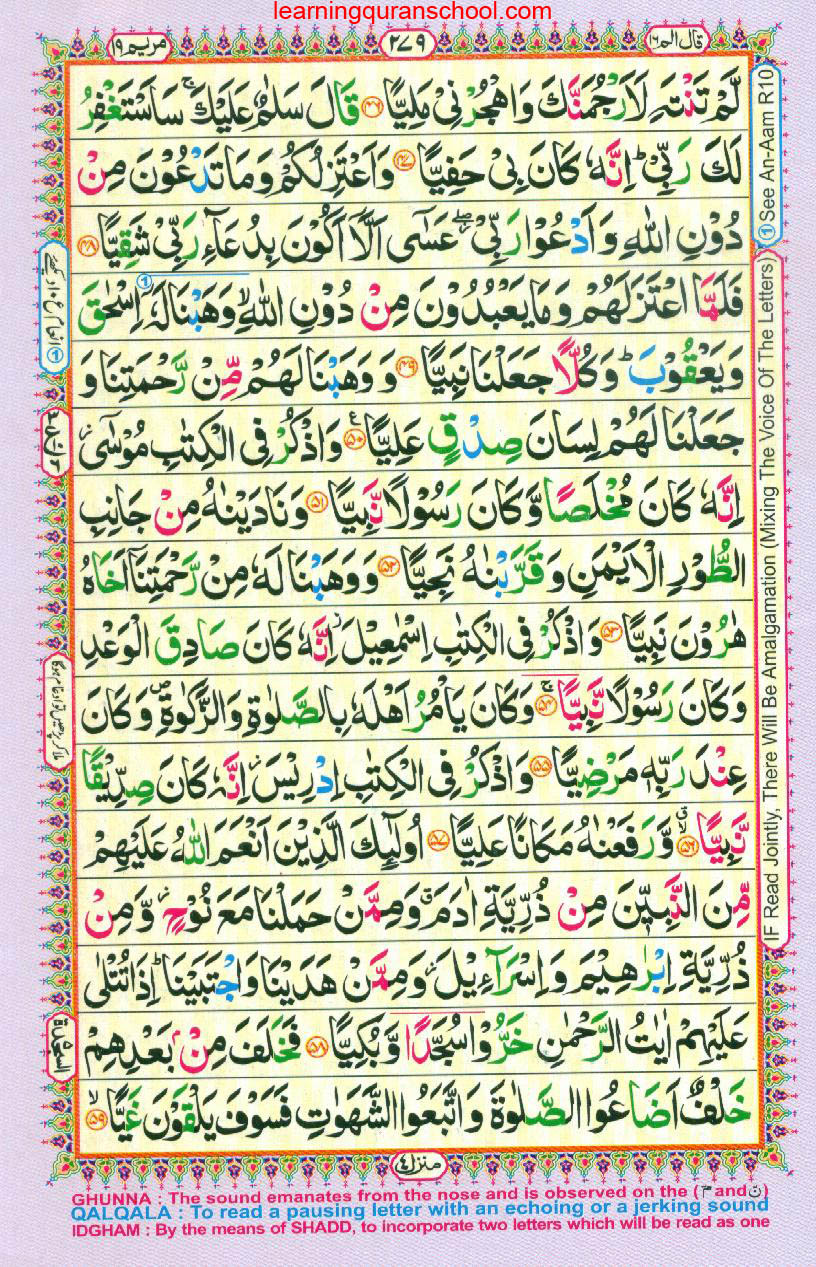 learningquranschool.com
قال الم ١٦
٢٧٩
مريم ١٩
لَّمْ تَنْتَهِ لَاَرْجُمَنَّكَ وَاهْجُرْنِيْ مَلِيًّا ۝٤٦ قَالَ سَلٰمٌ عَلَيْكَ ۚ سَاَسْتَغْفِرُ
لَكَ رَبِّيْ ؕ اِنَّهٗ كَانَ بِيْ حَفِيًّا ۝٤٧ وَاَعْتَزِلُكُمْ وَمَا تَدْعُوْنَ مِنْ
دُوْنِ اللّٰهِ وَاَدْعُوْا رَبِّيْ ۖ عَسٰۤى اَلَّاۤ اَكُوْنَ بِدُعَآءِ رَبِّيْ شَقِيًّا ۝٤٨
فَلَمَّا اعْتَزَلَهُمْ وَمَا يَعْبُدُوْنَ مِنْ دُوْنِ اللّٰهِ ۙ وَهَبْنَا لَهٗۤ اِسْحٰقَ
وَيَعْقُوْبَ ؕ وَكُلًّا جَعَلْنَا نَبِيًّا ۝٤٩ وَوَهَبْنَا لَهُمْ مِّنْ رَّحْمَتِنَا وَ
جَعَلْنَا لَهُمْ لِسَانَ صِدْقٍ عَلِيًّا ۝٥٠ وَاذْكُرْ فِي الْكِتٰبِ مُوْسٰۤى ؗ
اِنَّهٗ كَانَ مُخْلَصًا وَّكَانَ رَسُوْلًا نَّبِيًّا ۝٥١ وَنَادَيْنٰهُ مِنْ جَانِبِ
الطُّوْرِ الْاَيْمَنِ وَقَرَّبْنٰهُ نَجِيًّا ۝٥٢ وَوَهَبْنَا لَهٗ مِنْ رَّحْمَتِنَاۤ اَخَاهُ
هٰرُوْنَ نَبِيًّا ۝٥٣ وَاذْكُرْ فِي الْكِتٰبِ اِسْمٰعِيْلَ ؗ اِنَّهٗ كَانَ صَادِقَ الْوَعْدِ
وَكَانَ رَسُوْلًا نَّبِيًّا ۝٥٤ۚ وَكَانَ يَاْمُرُ اَهْلَهٗ بِالصَّلٰوةِ وَالزَّكٰوةِ ۪ وَكَانَ
عِنْدَ رَبِّهٖ مَرْضِيًّا ۝٥٥ وَاذْكُرْ فِي الْكِتٰبِ اِدْرِيْسَ ؗ اِنَّهٗ كَانَ صِدِّيْقًا
نَّبِيًّا ۝٥٦ۙ وَّرَفَعْنٰهُ مَكَانًا عَلِيًّا ۝٥٧ اُولٰٓئِكَ الَّذِيْنَ اَنْعَمَ اللّٰهُ عَلَيْهِمْ
مِّنَ النَّبِيّٖنَ مِنْ ذُرِّيَّةِ اٰدَمَ ۗ وَمِمَّنْ حَمَلْنَا مَعَ نُوْحٍ ؗ وَّمِنْ
ذُرِّيَّةِ اِبْرٰهِيْمَ وَاِسْرَآءِيْلَ ؗ وَمِمَّنْ هَدَيْنَا وَاجْتَبَيْنَا ؕ اِذَا تُتْلٰى
عَلَيْهِمْ اٰيٰتُ الرَّحْمٰنِ خَرُّوْا سُجَّدًا وَّبُكِيًّا ۝٥٨ فَخَلَفَ مِنْۢ بَعْدِهِمْ
خَلْفٌ اَضَاعُوا الصَّلٰوةَ وَاتَّبَعُوا الشَّهَوٰتِ فَسَوْفَ يَلْقَوْنَ غَيًّا ۝٥٩ۙ
① See An-Aam R10
IF Read Jointly, There Will Be Amalgamation (Mixing The Voice Of The Letters)
السجدة ٥
منزل ٤
GHUNNA : The sound emanates from the nose and is observed on the (مّ and نّ)
QALQALA : To read a pausing letter with an echoing or a jerking sound
IDGHAM : By the means of SHADD, to incorporate two letters which will be read as one